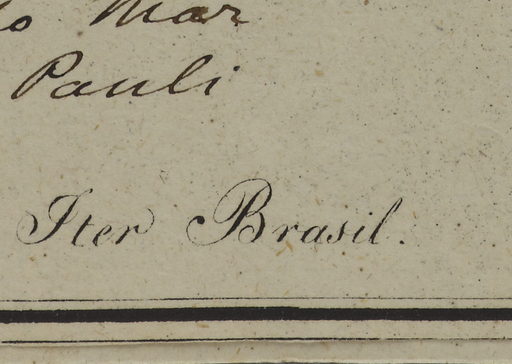 do Mar
Pauli
Iter Brasil.